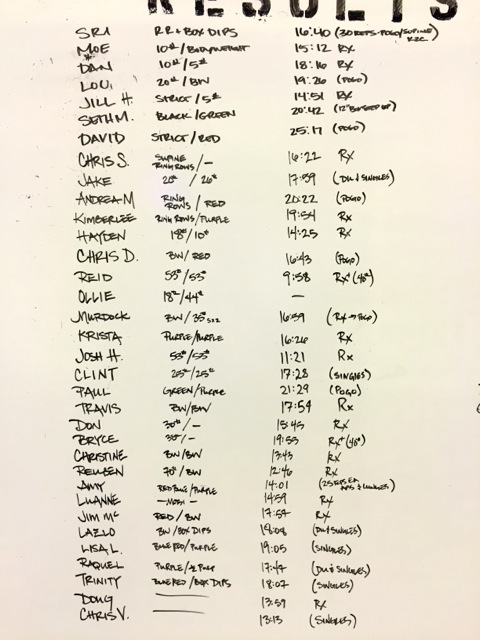 RESULTS
SRI RR + BOX DIPS 16:40 (30 REPS-POGO/SUPINE K2C)
MOE 10#/BODYWEIGHT 15:12 RX
DAN 10#/5# 18:16 RX
LOU 20#/BW 19:26 (POGO)
JILL H. STRICT/5# 14:51 RX
SETH M. BLACK/GREEN 20:42 (12" BOX STEP UP)
DAVID STRICT/RED 25:17 (POGO)
CHRIS S. SUPINE RING ROWS/— 16:22 RX
JAKE 26#/26# 17:59 (DU & SINGLES)
ANDREA M RING ROWS/RED 20:22 (POGO)
KIMBERLEE RING ROWS/PURPLE 19:54 RX
HAYDEN 18#/10# 14:25 RX
CHRIS D. BW/RED 16:43 (POGO)
REID 53#/53# 9:58 RX+ (48")
OLLIE 18#/44# —
MURDOCK BW/35# 16:59 (RX → POGO)
KRISTA PURPLE/PURPLE 16:26 RX
JOSH H. 53#/53# 11:21 RX
CLINT 25#/25# 17:28 (SINGLES)
PAUL GREEN/PURPLE 21:29 (POGO)
TRAVIS BW/BW 17:54 RX
DON 30#/— 15:45 RX
BRYCE 35#/— 19:55 RX+ (48")
CHRISTINE BW/BW 13:43 RX
REUBEN 70#/BW 12:46 RX
AMY RED BLUE/PURPLE 14:01 (25 REPS EA & LUNGES)
LUANNE — MOSH — 14:59 RX
JIM MC RED/BW 17:57 RX
LAZLO BW/BOX DIPS 18:08 (DU & SINGLES)
LISA L. BLUE RED/PURPLE 19:05 (SINGLES)
RAQUEL PURPLE/ 17:47 (DU & SINGLES)
TRINITY BLUE RED/BOX DIPS 18:07 (SINGLES)
DOUG —— 13:59 RX
CHRIS V. —— 13:13 (SINGLES)